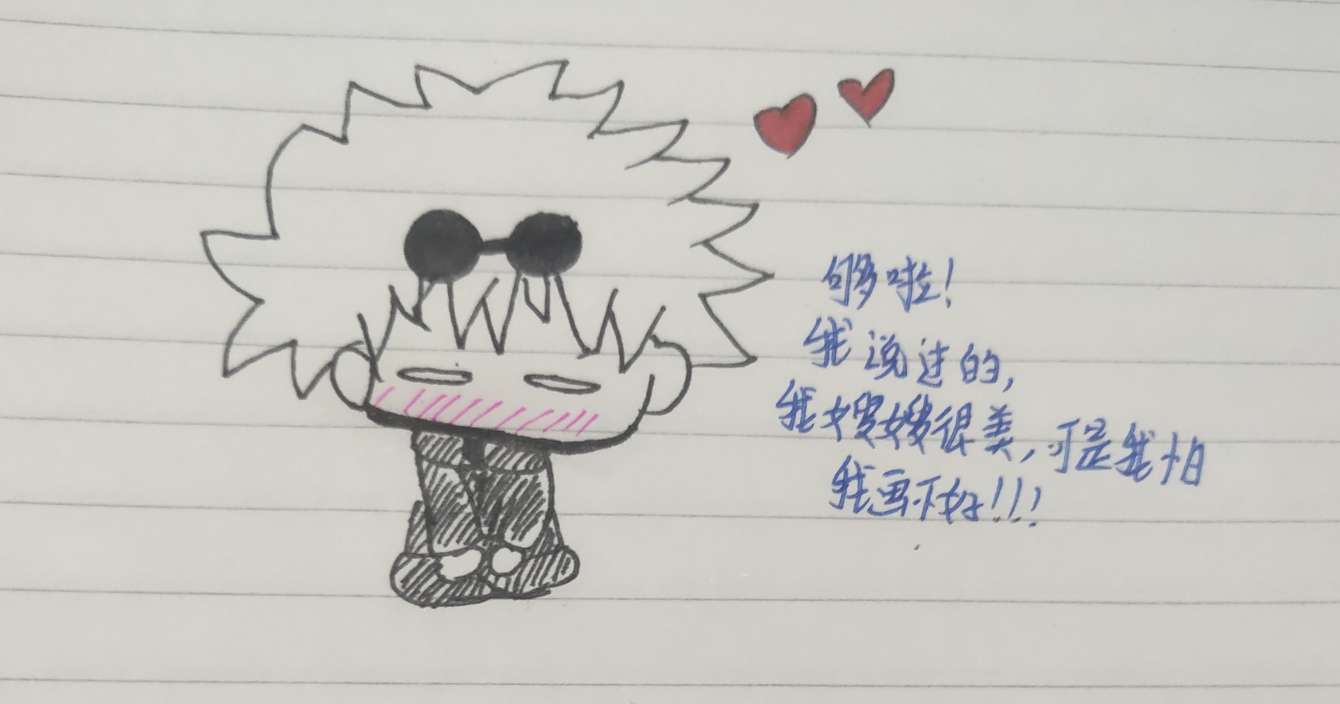 够啦!
我说过的,
我嫂嫂很美,可是我怕
我画不好!!!